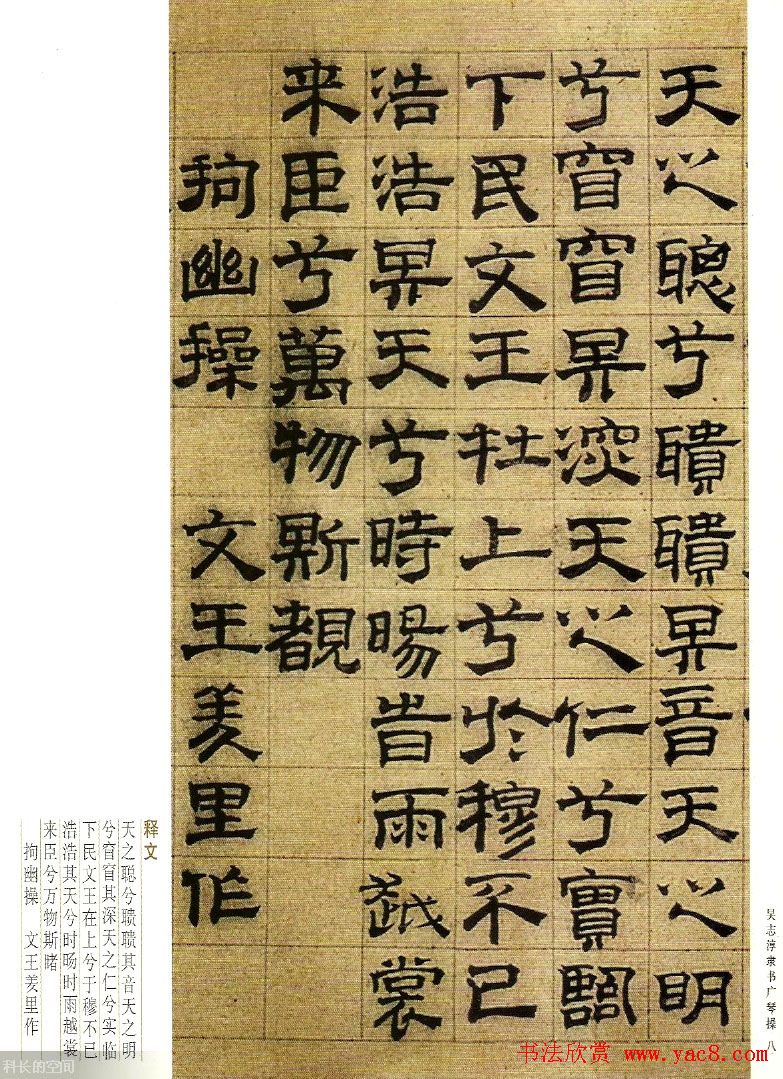 天之聰兮聵聵其音天之明
兮窅窅其深天之仁兮實臨
下民文王在上兮於穆不已
浩浩其天兮時暘旹雨越裳
来臣兮萬物斯覩
拘幽操 文王羑里作
吴志淳隶书广琴操 八
释文
天之聪兮聩聩其音天之明
兮窅窅其深天之仁兮实临
下民文王在上兮于穆不已
浩浩其天兮时旸时雨越裳
来臣兮万物斯睹
拘幽操 文王姜里作
科长的空间
书法欣赏 www.yac8.com